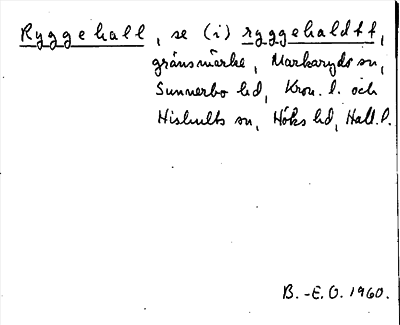 Ryggehall, se (i) ryggehaldtt,
gränsmärke, Markaryds sn,
Sunnerbo hd, Kron. l. och
Hishults sn, Höks hd, Hall. l.
B.-E.O. 1960.